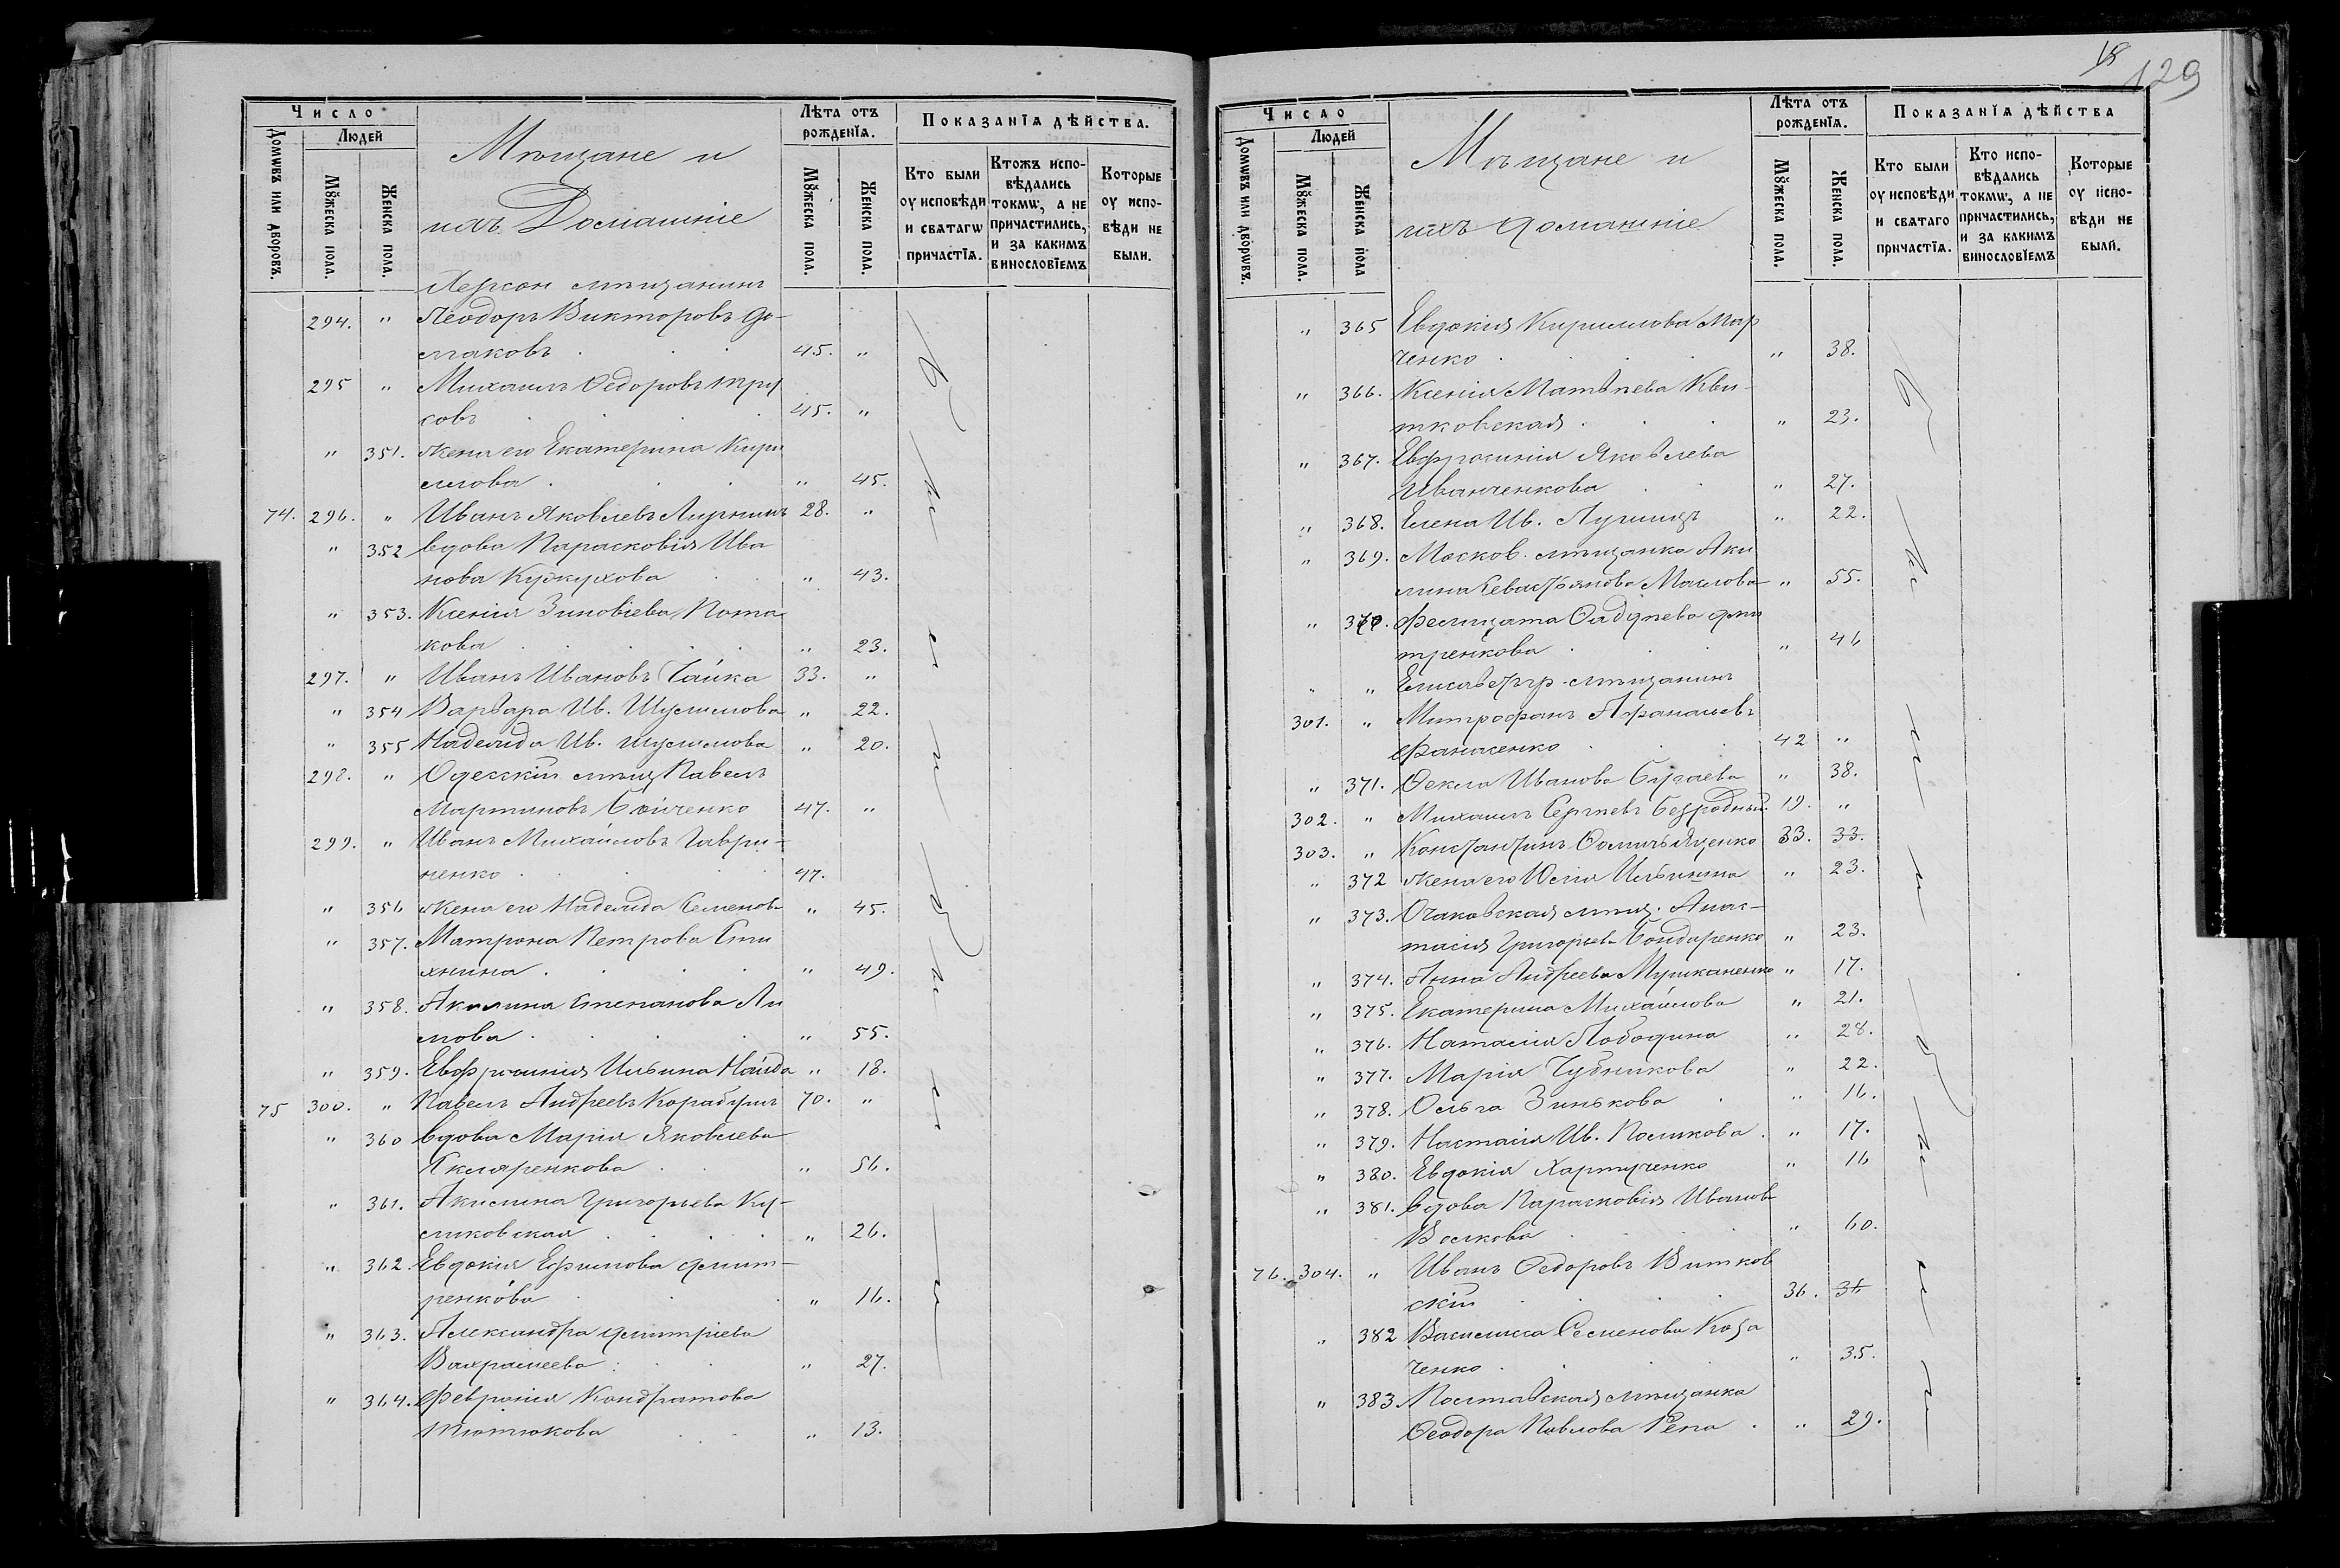 Число
Людей
Домѡвъ или дворовъ.
Мꙋжеска пола.
Женска пола.
Мѣщане и
ихъ Домашніе
Лѣта отъ рожденїѧ.
Мꙋжеска пола.
Женска пола.
Показанїѧ дѣйства.
Кто были оу исповѣди и свѧтагѡ причастїѧ.
Ктожъ исповѣдались токмѡ, а не причастились, и за какимъ винословїемъ
Которые оу исповѣди не были.
Херсон мѣщанинъ
294. " Ѳеодоръ Викторовъ До-
маковъ . . 45. "
295 " Михаилъ Ѳедоровъ Тру
ковъ . . 45. "
" 351. Жена его Екатерина Кири
лова . . " 45.
74. 296. " Иванъ Яковлевъ 28. "
" 352 Вдова Парасковія Ива
нова . " 43.
" 353. Ксенія Зиновіева Пота
кова . . " 23.
297. " Иванъ Ивановъ Гайка 33. "
" 354 Варвара Ив. Шумилова " 22.
" 355 Надежда Ив. Шумилова " 20.
298. " Одесскій мѣщ Павелъ
Мартиновъ Бойченко 47. "
299. " Иванъ Михайловъ Гаври-
ненко . . 47.
" 356 Жена его Надежда Семенов " 45.
" 357. Матрона Петрова
хнина . . " 49.
" 358. Акилина Степанова Ли
мова . . " 55.
" 359. Евфросинія Ильина Найда " 18.
75 300. " Павелъ Андреевъ Карабунъ 70. "
" 360 Вдова Марія Яковлева
Скляренкова . " 56.
" 361. Акилина Григорьева Ку-
ликовская . . " 26.
" 362. Евдокія Ефимова Дмит-
ренкова . . " 16.
" 363. Александра Дмитріева
Вахрамеева . . " 27.
" 364. Февронія Кондратова
Тютюкова . . " 13.
18
129
Число
Людей
Домѡвъ или дворѡвъ.
Мꙋжеска пола.
Женска пола
Мѣщане и
ихъ Домашніе
Лѣта отъ рожденїѧ.
Мꙋжеска пола.
Женска пола.
Показанїѧ дѣйства
Кто были оу исповѣди и свѧтаго причастїѧ.
Кто исповѣдались токмѡ, а не причастились, и за какимъ винословїемъ
Которые оу исповѣди не были.
" 365 Евдокія Кирилова Мар
ченко . . " 38.
" 366. Ксенія Матвѣева Кви-
тковская . . " 23.
" 367. Евфросинія Яковлева
Иванченкова . " 27.
" 368. Елена Ив. " 22.
" 369. Москов. мѣщанка Аки
лина Севастьянова Маслова " 55.
" 370. Фелицата Ѳаддѣева Дми
тренкова . . " 46
" " Елисаветгр. мѣщанинъ
301. " Митрофанъ Афанасьевъ
Фанасенко . . 42 "
" 371. Ѳекла Иванова Бугаева " 38.
302. " Михаилъ Сергѣевъ Безродный 19. "
303. " Константинъ Ѳоминъ Яценко 33. 33.
" 372 Жена его Юлія Ильинина " 23.
" 373. Очаковская мѣщ. Анас-
тасія Григорьева Бондаренко " 23.
" 374. Анна Андреева Мушканенко " 17.
" 375. Екатерина Михайлова " 21.
" 376. Наталія Лободина " 28.
" 377. Марія Чубникова " 22.
" 378. Ольга Зинькова . " 16.
" 379. Настасія Ив. Поликова . " 17.
" 380. Евдокія Хартученко " 16
" 381. Вдова Парасковія Иванов
Волкова . " 60.
76. 304. " Иванъ Ѳедоровъ Витков
скій . . 36. 36
" 382 Василиса Семенова Коза
ченко . . " 35.
" 383. Полтавская мѣщанка
Ѳеодора Павлова Репа . " 29.